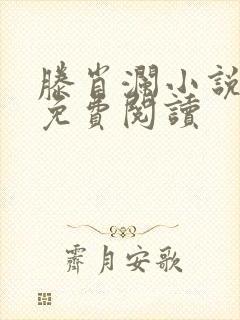 滕肖瀾小說
免費閱讀
霽月安歌